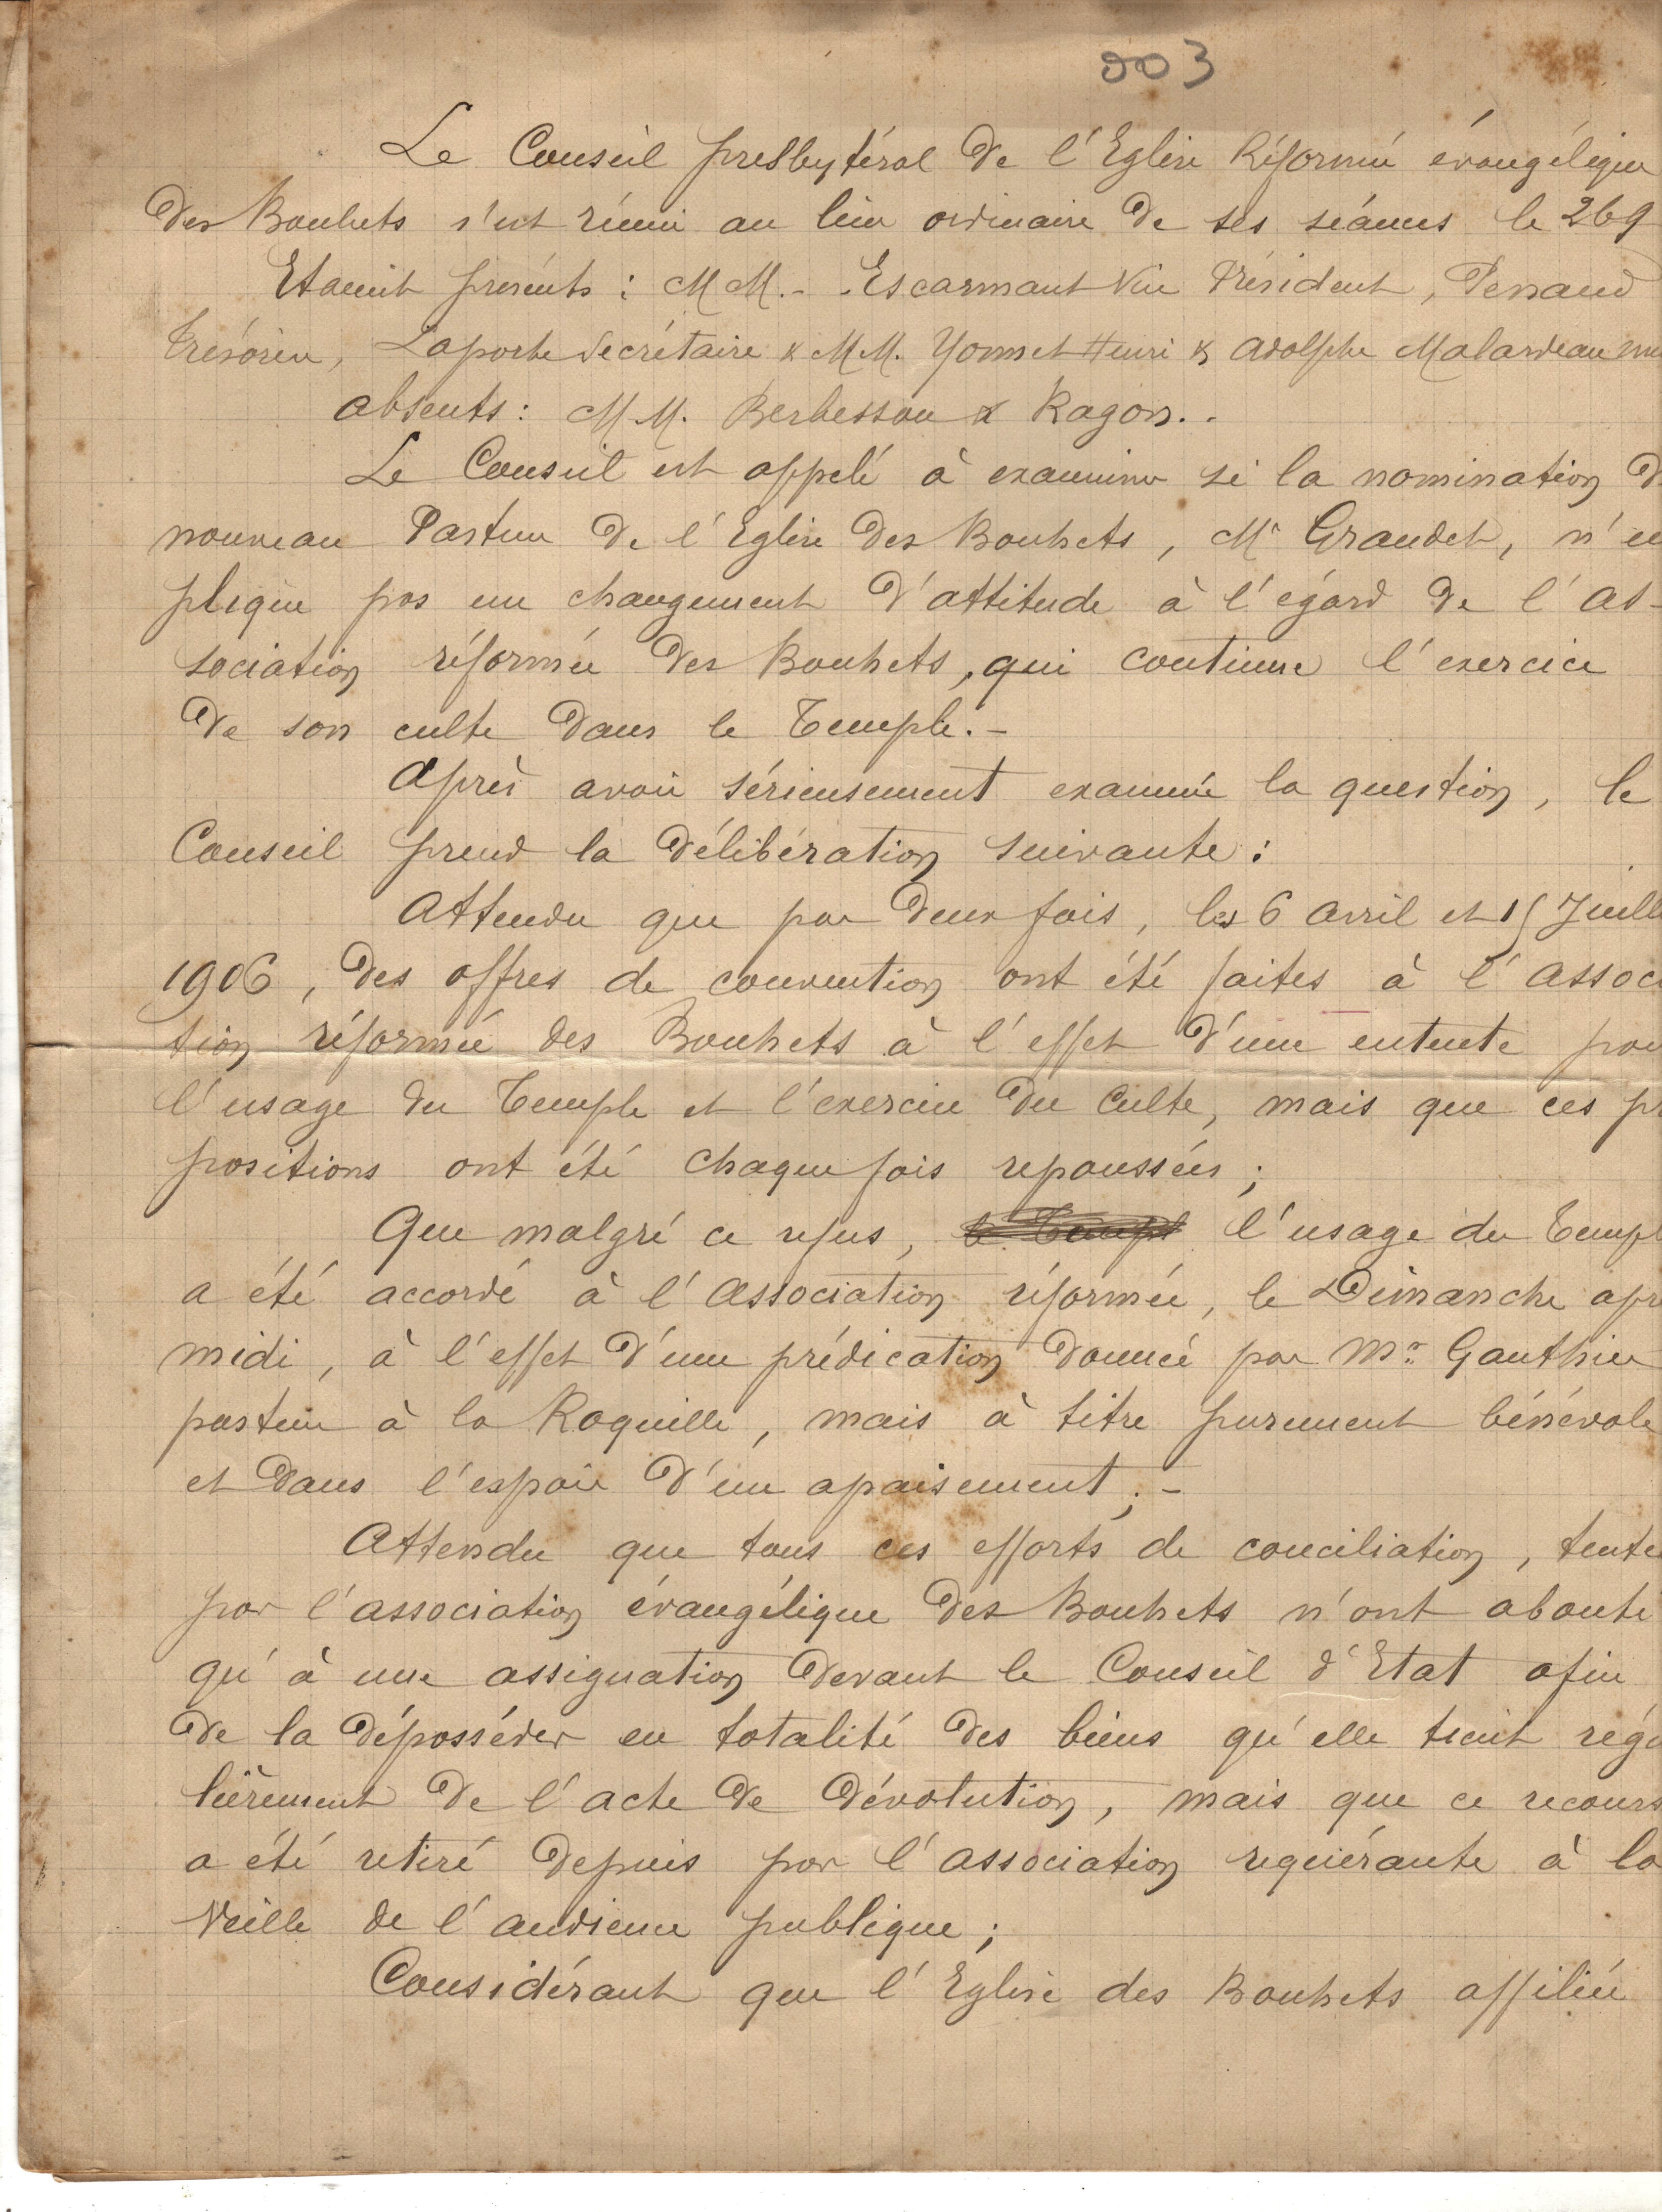 903
Le Conseil presbytéral de l'Eglise Réformée évangélique
des Bouhets s'est réuni au lieu ordinaire de ses séances le 26 9
Etaient présents : MM. - Escarmant Vice Président, Penaud
Trésorier, Laporte Secrétaire & MM. Yonnet Henri & Adolphe Malardeau
absents : MM. Berbessou & Ragon. -
Le Conseil est appelé à examiner si la nomination d
nouveau Pasteur de l'Eglise des Bouhets, Mr Graudet, n'en
plique pas un changement d'attitude à l'égard de l'as-
sociation réformée des Bouhets, qui continue l'exercice
de son culte dans le Temple. -
Après avoir sérieusement examiné la question, le
Conseil prend la délibération suivante :
Attendu que par deux fois, les 6 Avril et 15 Juill
1906, des offres de convention ont été faites à l'associ
tion réformée des Bouhets à l'effet d'une entente pou
l'usage du Temple et l'exercice du culte, mais que ces pr
positions ont été chaque fois repoussées ;
Que malgré ce refus, le Temple l'usage du Templ
a été accordé à l'Association réformée, le Dimanche apr
midi, à l'effet d'une prédication donnée par Mr. Gauthier
pasteur à la Roquille, mais à titre purement bénévole
et dans l'espoir d'un apaisement ; -
Attendu que tous ces efforts de conciliation, tenté
par l'association évangélique des Bouhets n'ont abouti
qu'à une assignation devant le Conseil d'Etat afin
de la déposséder en totalité des biens qu'elle tient régu
lièrement de l'acte de dévolution, mais que ce recours
a été retiré depuis par l'association requérante à la
veille de l'audience publique ;
Considérant que l'Eglise des Bouhets affiliée